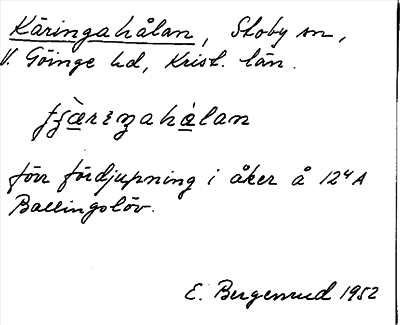 Käringahålan, Stoby sn,
V. Göinge hd, Krist. län.
förr fördjupning i åker å 12⁴A
Ballingslöv.
E. Bergenrud 1952